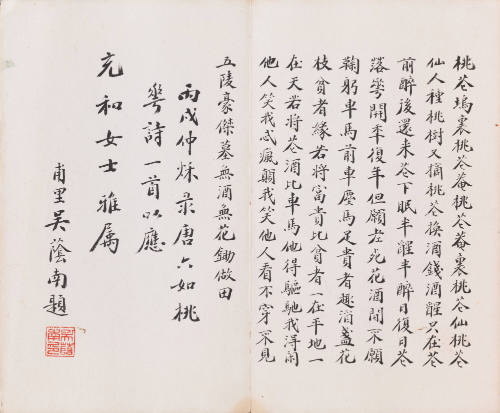 桃花塢裏桃花菴桃花菴裏桃花仙桃花
仙人種桃樹又摘桃花換酒錢酒醒只在花
前醉後還来花下眠半醒半醉日復日花
落華開年復年但願老死花酒間不願
鞠躬車馬前車塵馬足貴者趣酒盞花
枝貧者緣若將富貴比貧者一在平地一
在天若將花酒比車馬他得驅馳我得閑
他人笑我忒瘋顛我笑他人看不穿不見
五陵豪傑墓無酒無花鋤做田
丙戌仲秌录唐六如桃
華詩一首以應
充和女士雅属
甫里吴蔭南題